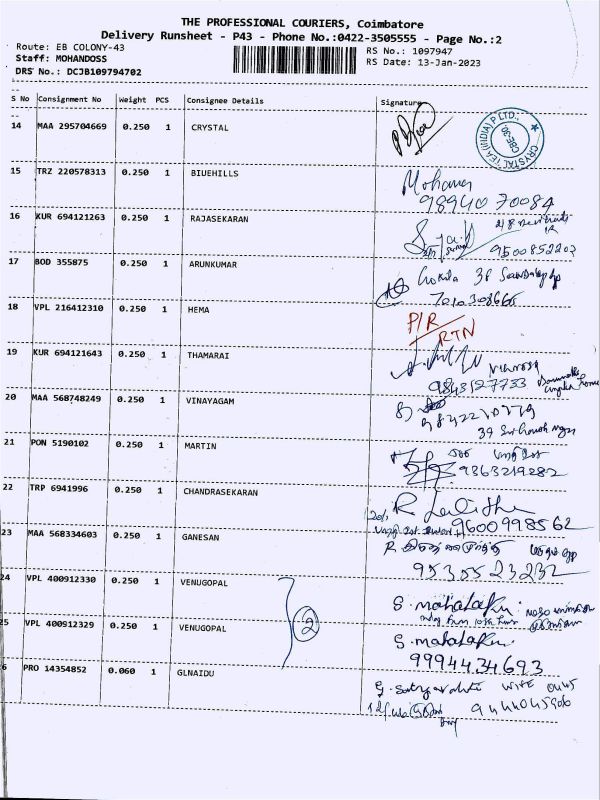 THE PROFESSIONAL COURIERS, Coimbatore
Delivery Runsheet - P43 - Phone No.:0422-3505555 - Page No.:2
Route: EB COLONY-43
RS No.: 1097947
Staff: MOHANDOSS
RS Date: 13-Jan-2023
DRS No.: DCJB109794702
S No Consignment No Weight PCS Consignee Details Signature
14 MAA 295704669 0.250 1 CRYSTAL
CRYSTAL TEA (INDIA) P LTD.,
15 TRZ 220578313 0.250 1 BIUEHILLS
Mohana
9894070084
16 KUR 694121263 0.250 1 RAJASEKARAN
9500852202
17 BOD 355875 0.250 1 ARUNKUMAR
Gokila 38
18 VPL 216412310 0.250 1 HEMA
P/R
RTN
19 KUR 694121643 0.250 1 THAMARAI
9843127733
20 MAA 568748249 0.250 1 VINAYAGAM
39
21 PON 5190102 0.250 1 MARTIN
9363219282
22 TRP 6941996 0.250 1 CHANDRASEKARAN
R Lalitha
9600998562
23 MAA 568334603 0.250 1 GANESAN
9535523232
24 VPL 400912330 0.250 1 VENUGOPAL
S. mahalakshmi
2
25 VPL 400912329 0.250 1 VENUGOPAL
S. mahalakshmi
9994434693
6 PRO 14354852 0.060 1 GLNAIDU
WIFE
9444045906